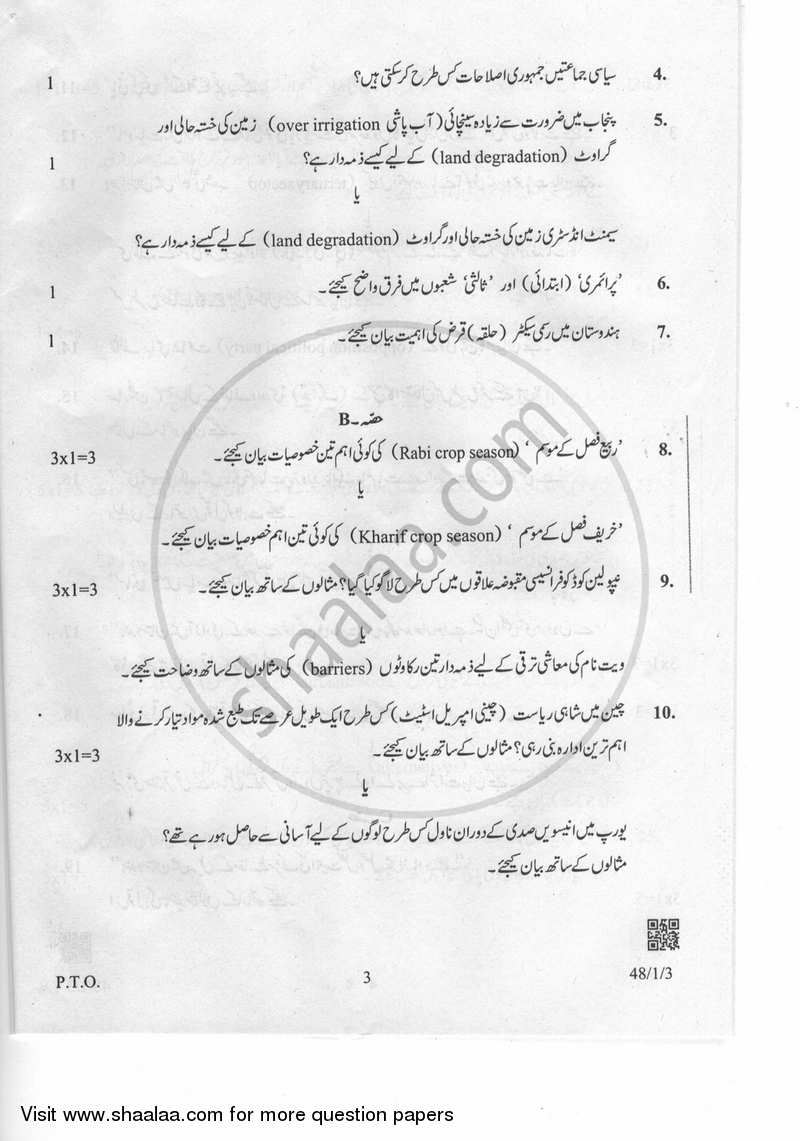 4. سیاسی جماعتیں جمہوری اصلاحات کس طرح کرسکتی ہیں؟ 1
5. پنجاب میں ضرورت سے زیادہ سینچائی (آب پاشی over irrigation) زمین کی خستہ حالی اور
گراوٹ (land degradation) کے لیے کیسے ذمہ دار ہے؟ 1
یا
سیمنٹ انڈسٹری زمین کی خستہ حالی اور گراوٹ (land degradation) کے لیے کیسے ذمہ دار ہے؟
6. ’پرائمری‘ (ابتدائی) اور ’ثالثی‘ شعبوں میں فرق واضح کیجئے۔ 1
7. ہندوستان میں رسمی سیکٹر (حلقہ) قرض کی اہمیت بیان کیجئے۔ 1
حصّہ۔B
8. ’ربیع فصل کے موسم‘ (Rabi crop season) کی کوئی اہم تین خصوصیات بیان کیجئے۔ 3x1=3
یا
’خریف فصل کے موسم‘ (Kharif crop season) کی کوئی تین اہم خصوصیات بیان کیجئے۔
9. نپولین کوڈ کو فرانسیسی مقبوضہ علاقوں میں کس طرح لاگو کیا گیا؟ مثالوں کے ساتھ بیان کیجئے۔ 3x1=3
یا
ویت نام کی معاشی ترقی کے لیے ذمہ دار تین رکاوٹوں (barriers) کی مثالوں کے ساتھ وضاحت کیجئے۔
10. چین میں شاہی ریاست (چینی امپریل اسٹیٹ) کس طرح ایک طویل عرصے تک طبع شدہ مواد تیار کرنے والا
اہم ترین ادارہ بنی رہی؟ مثالوں کے ساتھ بیان کیجئے۔ 3x1=3
یا
یورپ میں انیسویں صدی کے دوران ناول کس طرح لوگوں کے لیے آسانی سے حاصل ہو رہے تھے؟
مثالوں کے ساتھ بیان کیجئے۔
shaalaa.com
P.T.O. 3 48/1/3
Visit www.shaalaa.com for more question papers